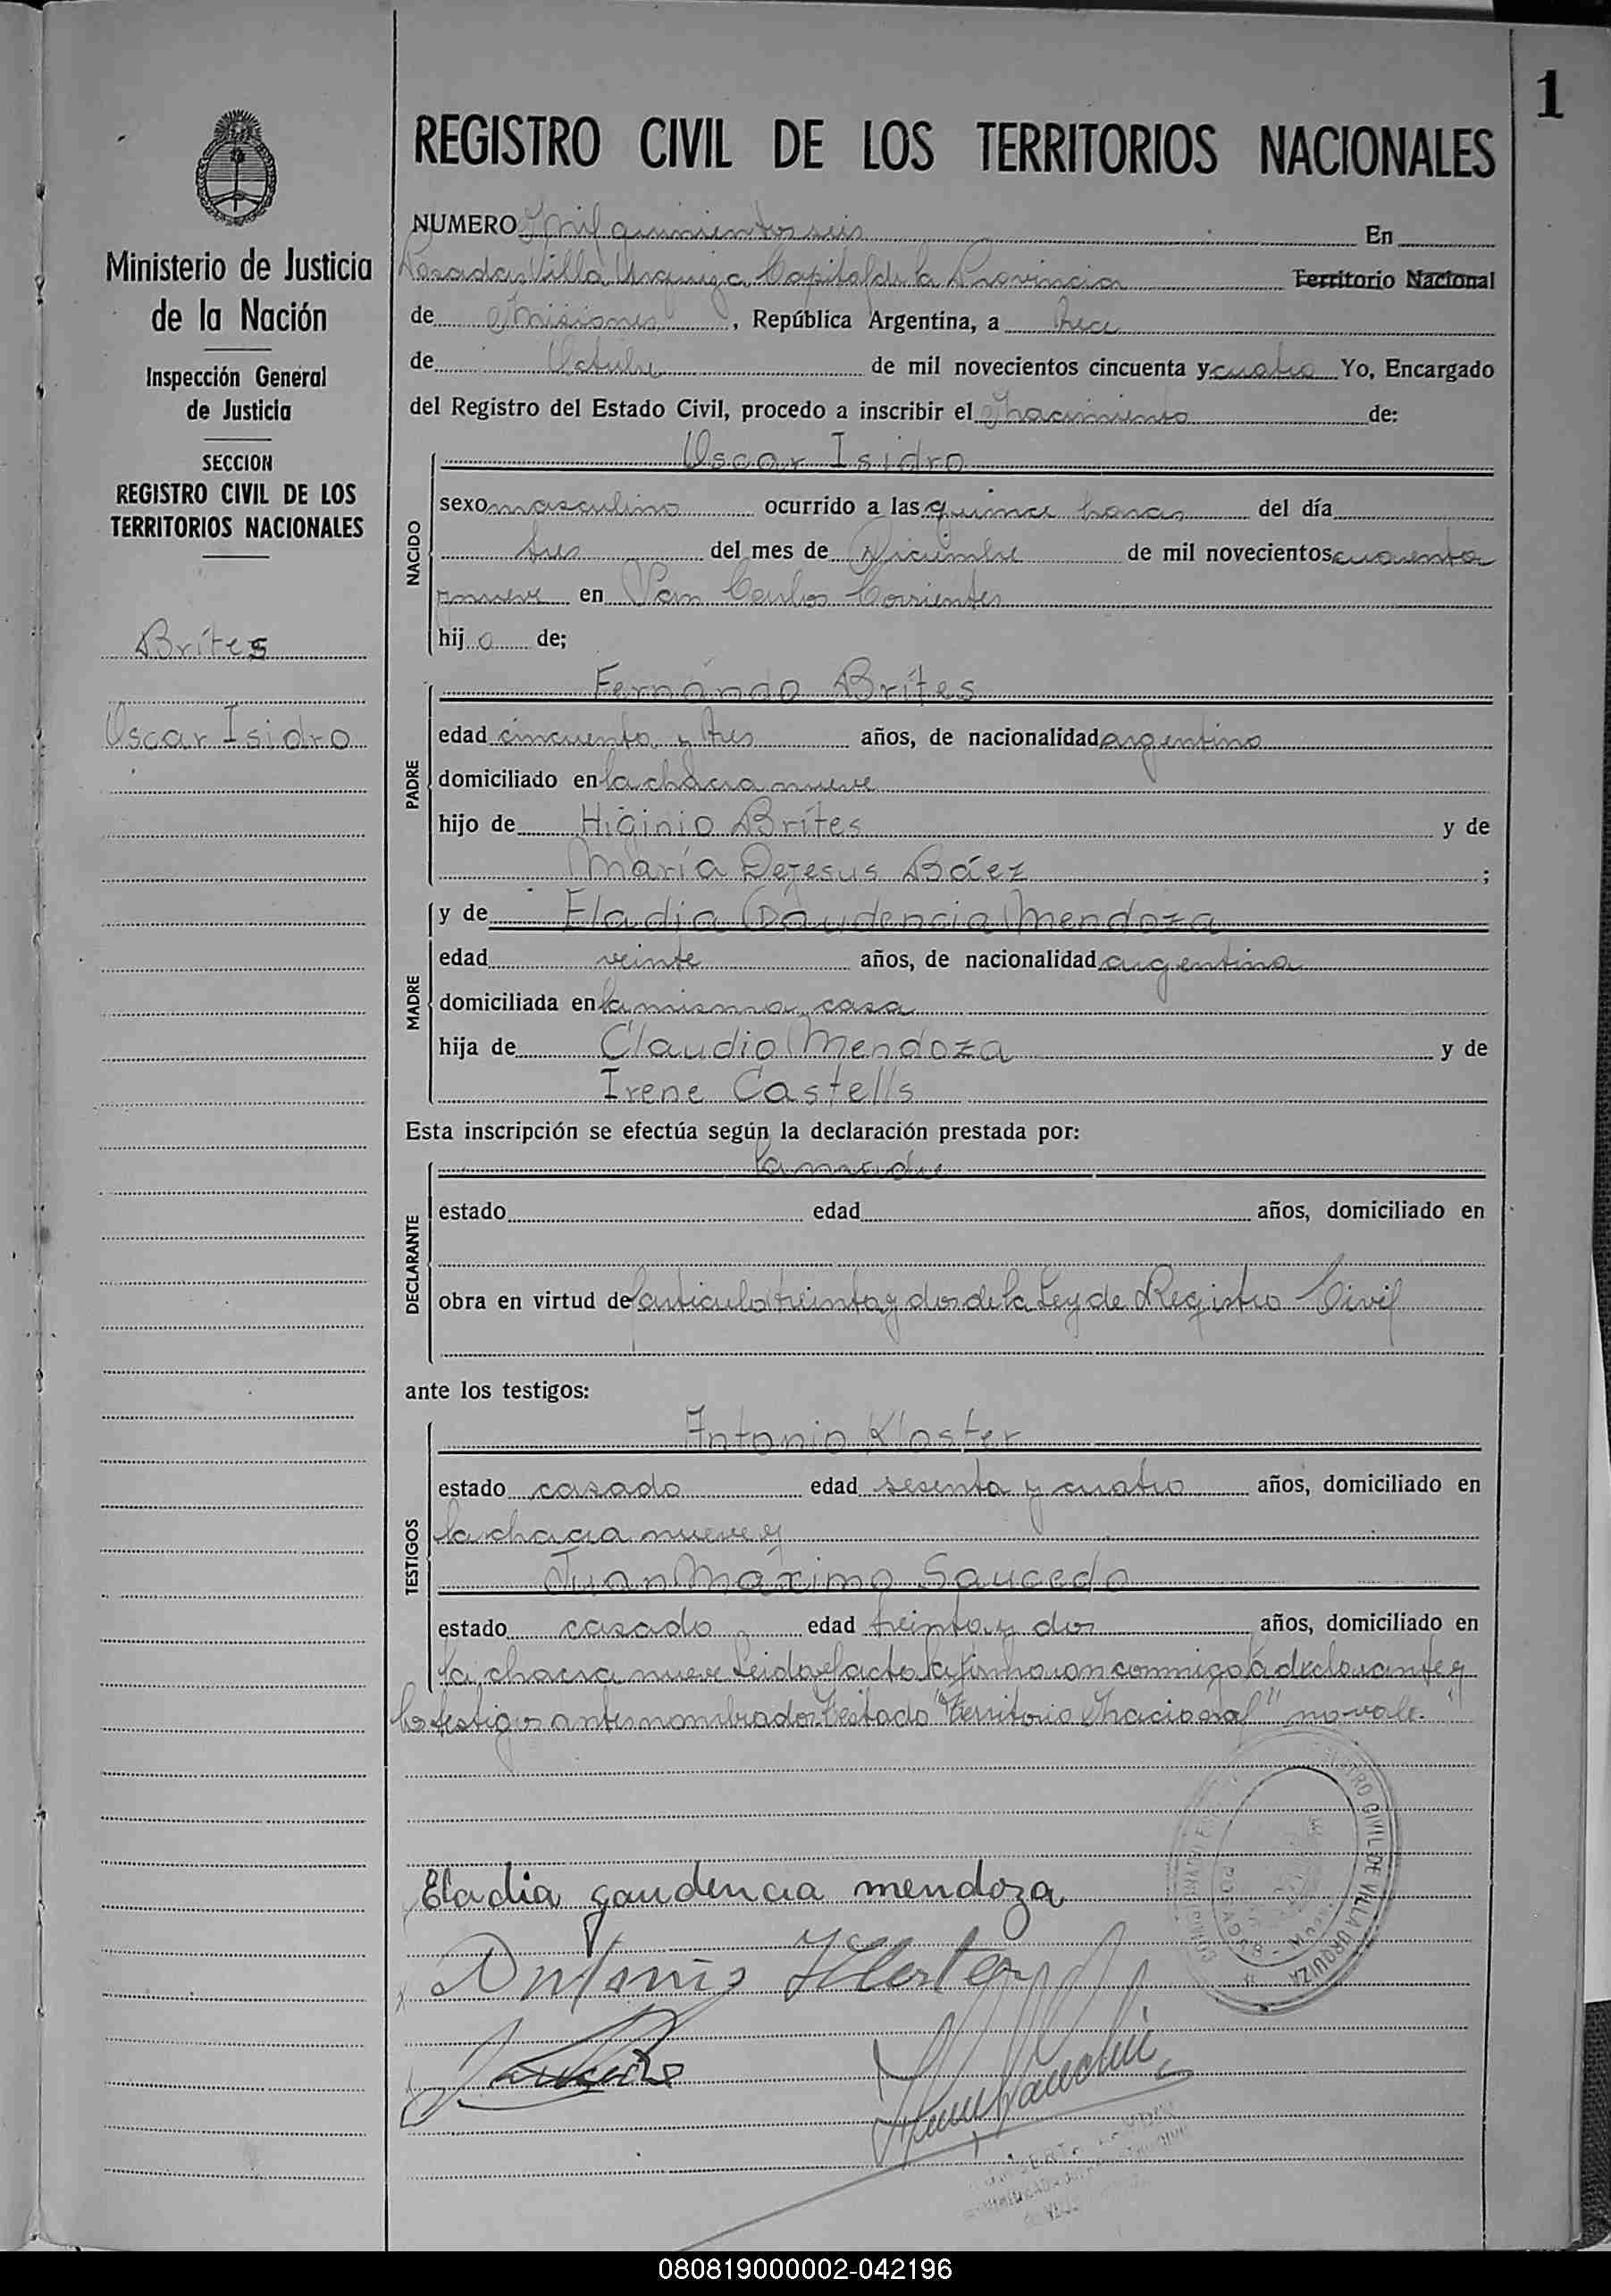 1
REGISTRO CIVIL DE LOS TERRITORIOS NACIONALES
Ministerio de Justicia
de la Nación
Inspección General
de Justicia
SECCION
REGISTRO CIVIL DE LOS
TERRITORIOS NACIONALES
Brítes
Oscar Isidro
NUMERO Mil quinientos seis En
Posadas Villa Urquiza Capital de la Provincia Territorio Nacional
de Misiones, República Argentina, a trece
de Octubre de mil novecientos cincuenta y cuatro Yo, Encargado
del Registro del Estado Civil, procedo a inscribir el Nacimiento de:
Oscar Isidro
NACIDO
sexo masculino ocurrido a las quince horas del día
tres del mes de Diciembre de mil novecientos cuarenta
y nueve en San Carlos Corrientes
hijo de;
Fernando Brítes
PADRE
edad cincuenta y tres años, de nacionalidad argentino
domiciliado en la chacra nueve
hijo de Higinio Brítes y de
María Dejesus Báez ;
MADRE
y de Eladia Gaudencia Mendoza
edad veinte años, de nacionalidad argentina
domiciliada en la misma casa
hija de Claudio Mendoza y de
Irene Castells
Esta inscripción se efectúa según la declaración prestada por:
la madre
DECLARANTE
estado edad años, domiciliado en
obra en virtud del articulo treinta y dos de la Ley de Registro Civil
ante los testigos:
Antonio Kloster
TESTIGOS
estado casado edad sesenta y cuatro años, domiciliado en
la chacra nueve y
Juan Máximo Saucedo
estado casado edad treinta y dos años, domiciliado en
la chacra nueve Leida el acta la firmaron conmigo la declarante y
los testigos antes nombrados. Testado "Territorio Nacional" no vale.
Eladia gaudencia mendoza
Antonio Kloster
REGISTRO CIVIL DE VILLA URQUIZA
080819000002-042196